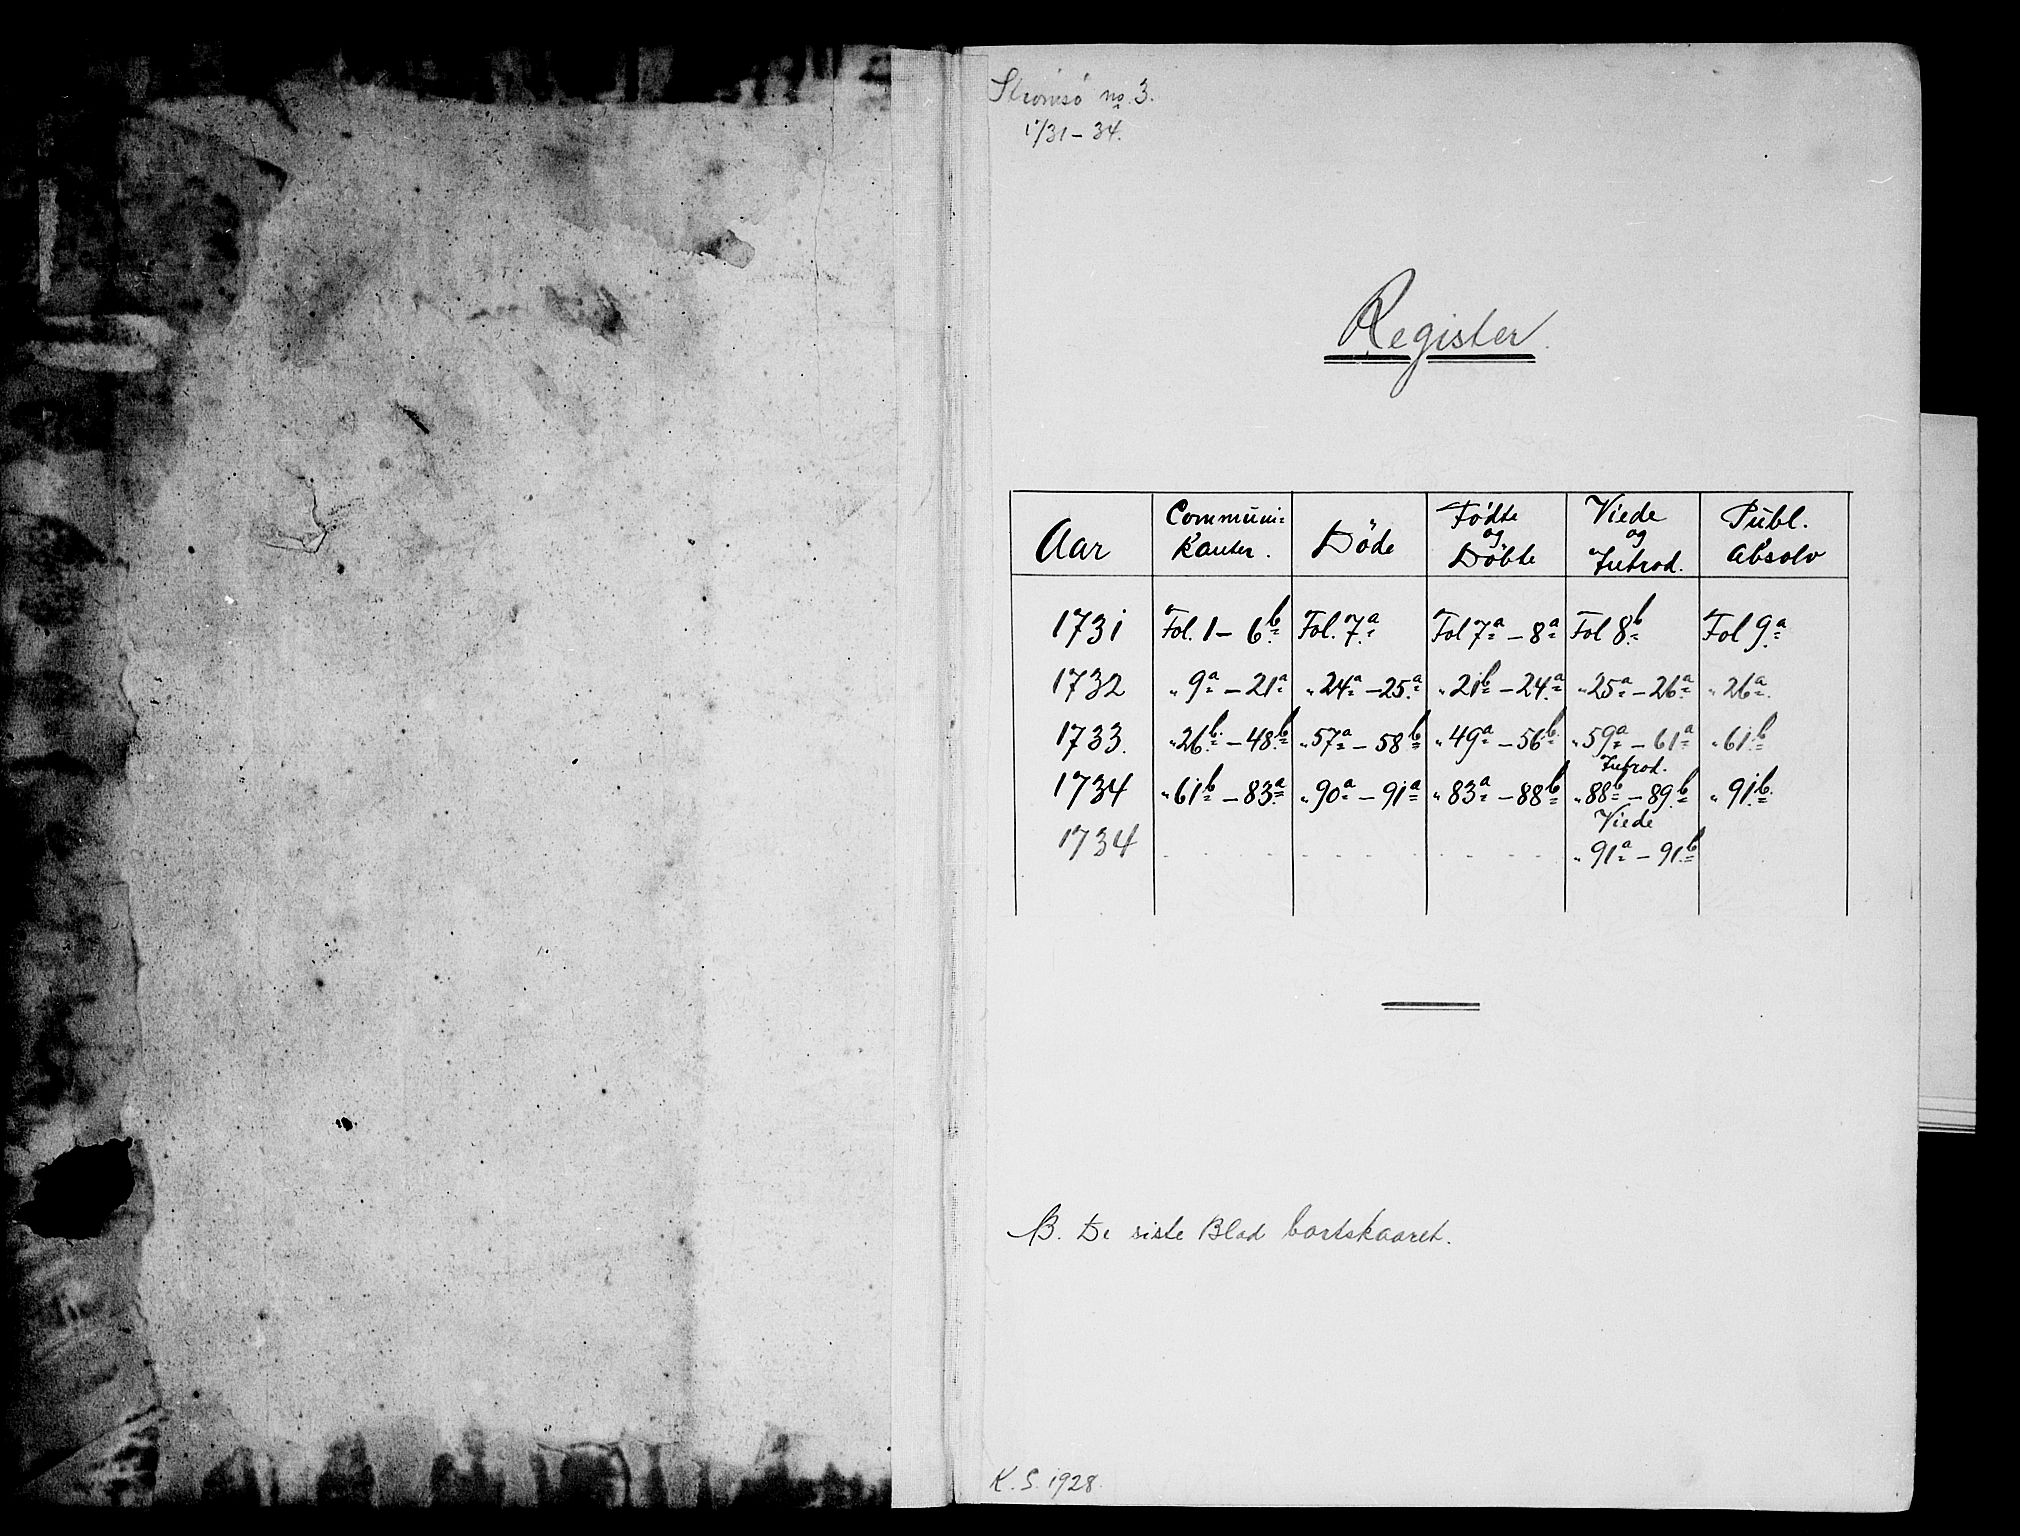 Strømsø no. 3.
1731-34.
Register.
Aar Communi= Kanter. Döde Fødte og Döbte Viede og Introd. Publ. Absolv
1731 Fol. 1 - 6b Fol. 7a Fol 7a - 8a Fol 8b Fol 9a
1732 " 9a - 21a " 24a - 25a " 21b - 24a " 25a - 26a " 26a
1733. " 26b - 48b " 57a - 58b " 49a - 56b " 59a - 61a " 61b
1734 " 61b - 83a " 90a - 91a " 83a - 88b Introd. " 88b - 89b " 91b
1734 Viede " 91a - 91b
NB. De siste Blad bortskaaret.
K. S. 1928.